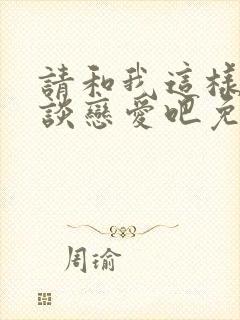 請和我這樣
談戀愛吧免
周瑜